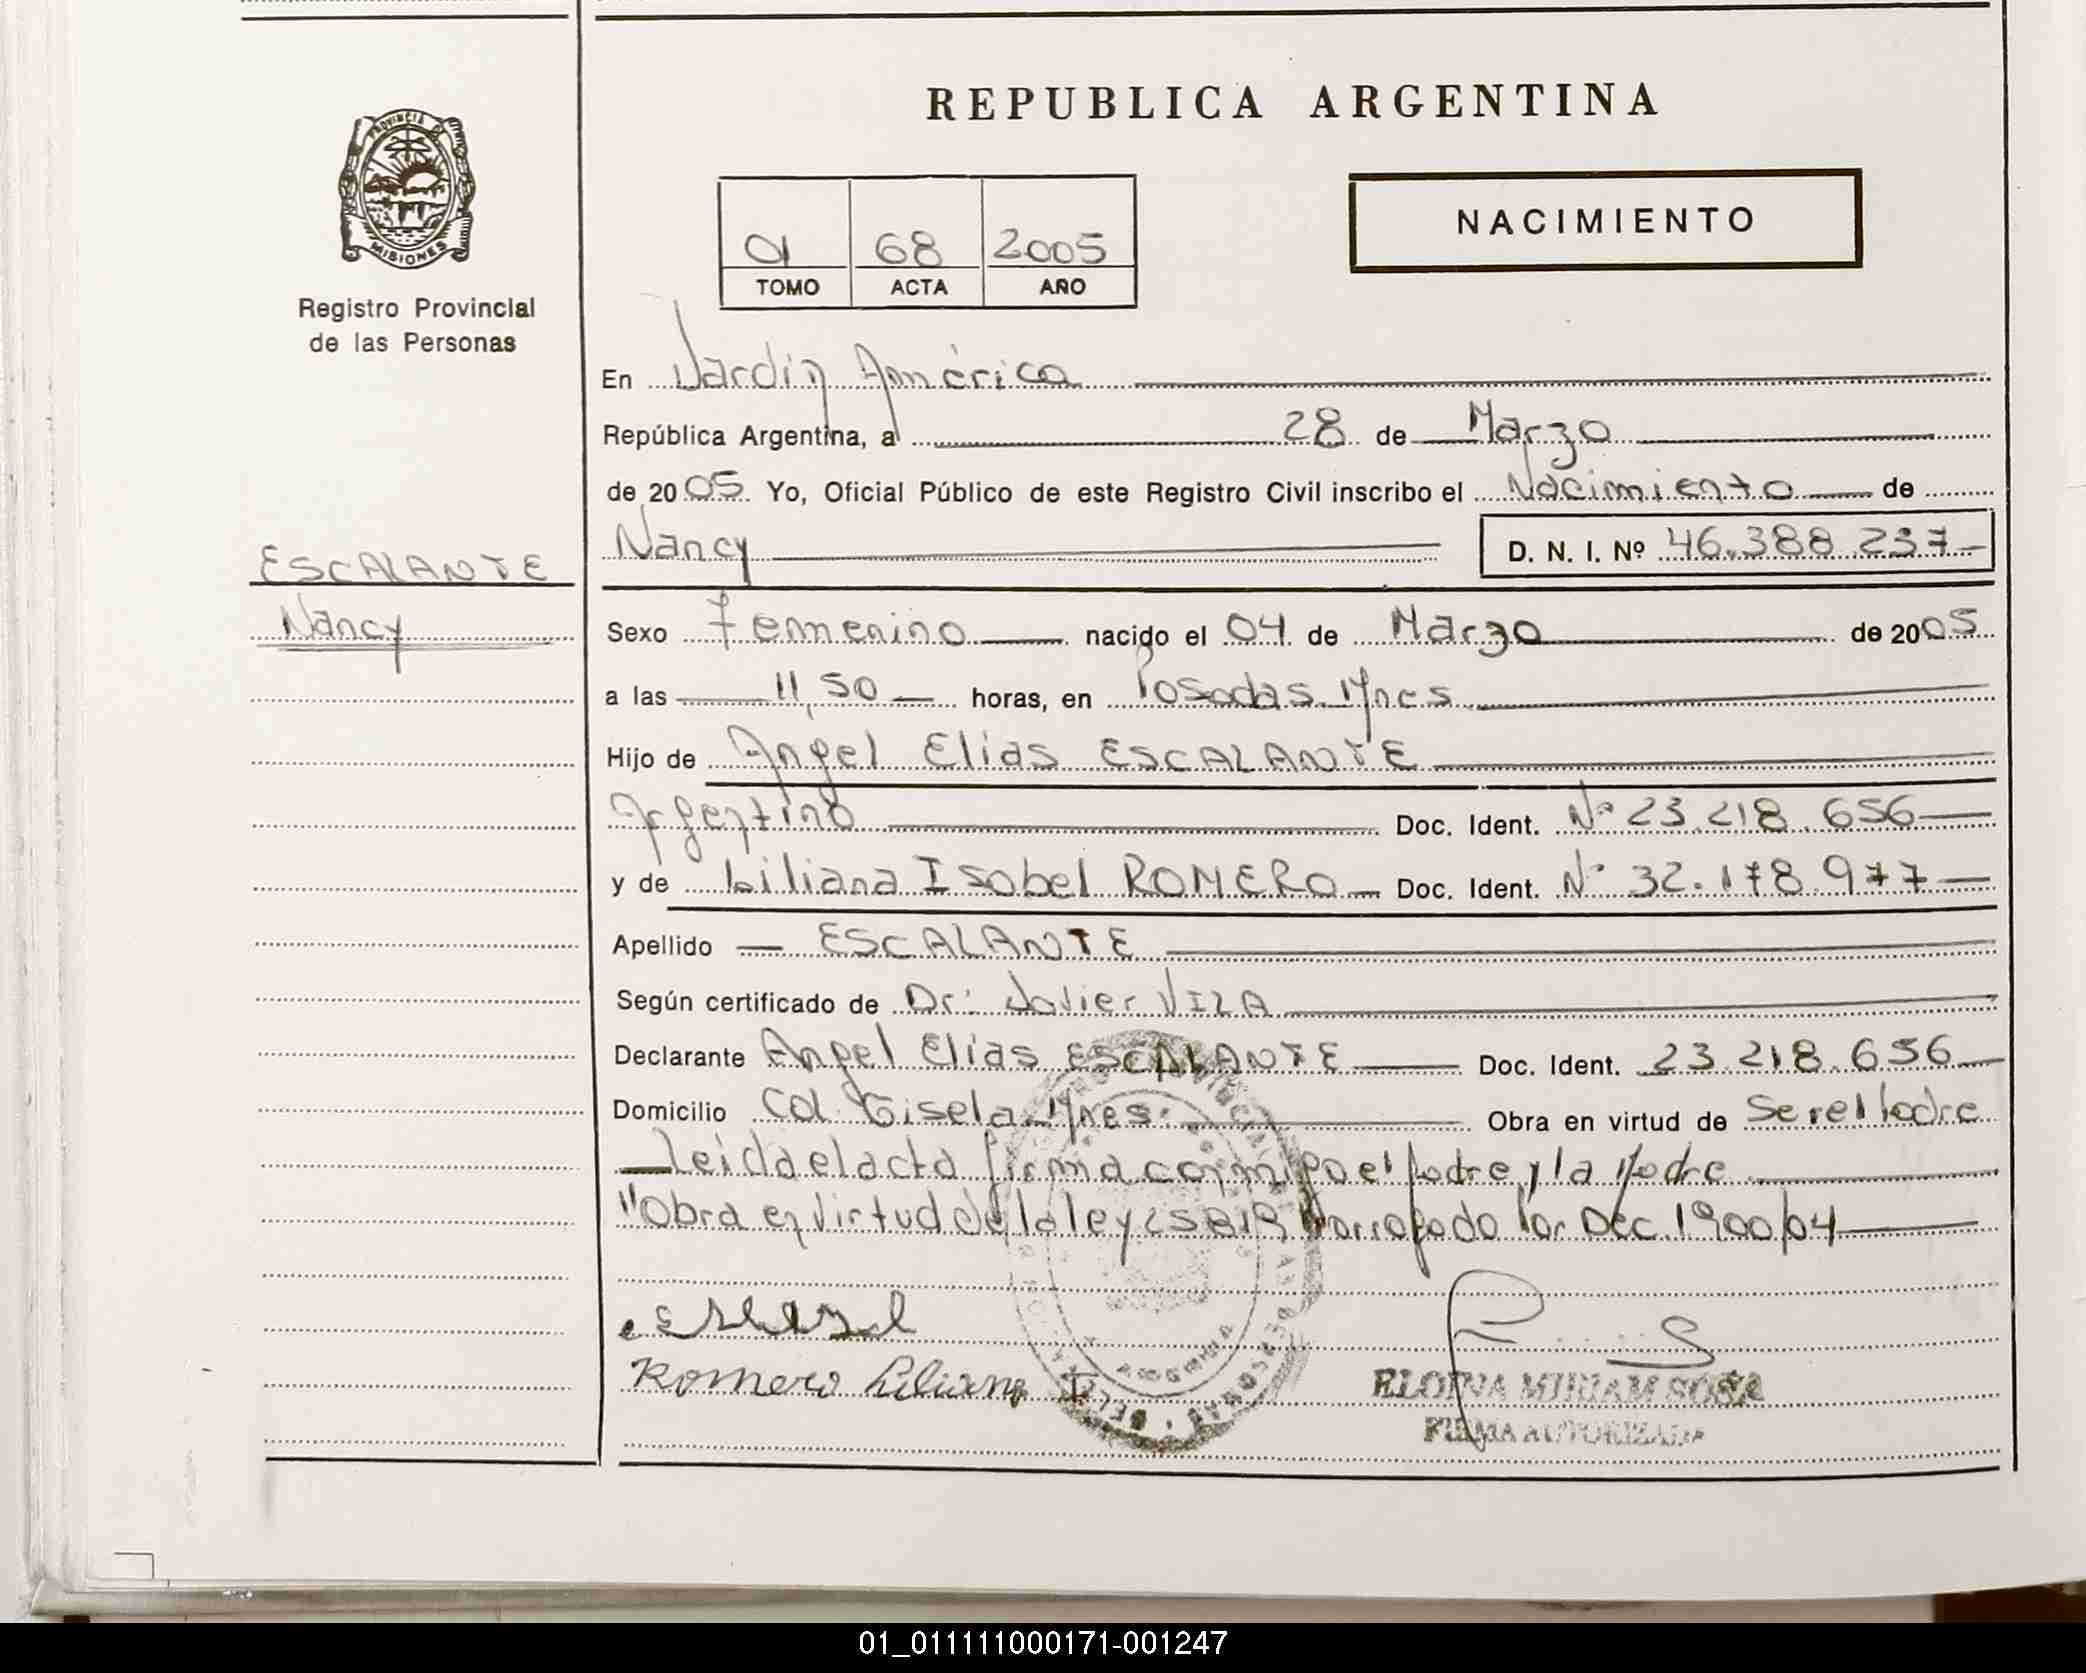 PROVINCIA DE
MISIONES
Registro Provincial
de las Personas
ESCALANTE
Nancy
REPUBLICA ARGENTINA
NACIMIENTO
01 68 2005
TOMO ACTA AÑO
En Jardín América
República Argentina, a 28 de Marzo
de 2005 Yo, Oficial Público de este Registro Civil inscribo el Nacimiento de
Nancy D. N. I. Nº 46.388.237
Sexo Femenino nacido el 04 de Marzo de 2005
a las 11,50 horas, en Posadas Mnes
Hijo de Angel Elias ESCALANTE
Argentino Doc. Ident. Nº 23.218.656
y de Liliana Isabel ROMERO Doc. Ident. Nº 32.178.977
Apellido ESCALANTE
Según certificado de Dr: Javier VILA
Declarante Angel Elias ESCALANTE Doc. Ident. 23.218.656
Domicilio Col. Gisela Mnes. Obra en virtud de Ser el Padre
Leida el acta firma conmigo el Padre y la Madre
"Obra en virtud de la ley 25819 Prorrogado Por Dec. 1900/04
Romero Liliana I
ELOINA MIRIAM SOSA
FIRMA AUTORIZADA
01_011111000171-001247